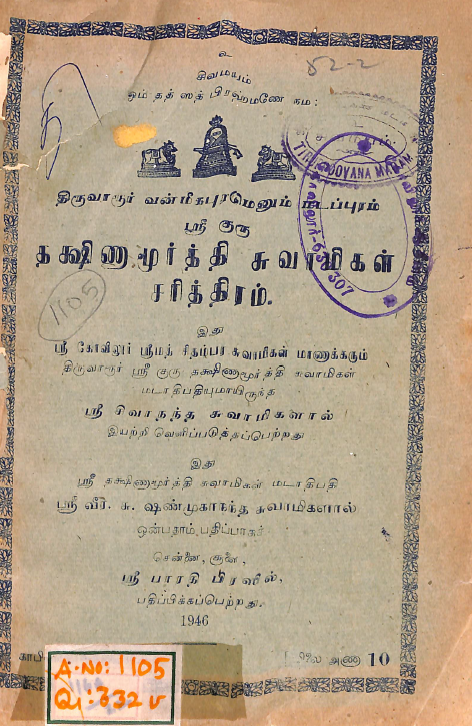 உ
சிவமயம்
ஓம் தத் ஸத் பிரஹ்மணே நம:
திருவாரூர் வன்மிகபுரமெனும் மடப்புரம்
ஸ்ரீ குரு
தக்ஷிணாமூர்த்தி சுவாமிகள்
சரித்திரம்.
இது
ஸ்ரீ கோவிலூர் ஸ்ரீமத் சிதம்பர சுவாமிகள் மாணாக்கரும்
திருவாரூர் ஸ்ரீ குரு தக்ஷிணாமூர்த்தி சுவாமிகள்
மடாதிபதியுமாயிருந்த
ஸ்ரீ சிவாநந்த சுவாமிகளால்
இயற்றி வெளிப்படுத்தப்பெற்றது
இது
ஸ்ரீ தக்ஷிணாமூர்த்தி சுவாமிகள் மடாதிபதி
ஸ்ரீ வீர. சு. ஷண்முகாநந்த சுவாமிகளால்
ஒன்பதாம் பதிப்பாகச்
சென்னை, சூளை,
ஸ்ரீ பாரதி பிரஸில்,
பதிப்பிக்கப்பெற்றது.
1946
காபி
விலை அணா 10
1105
82-2
307
A.NO: 1105
Q1:332 v